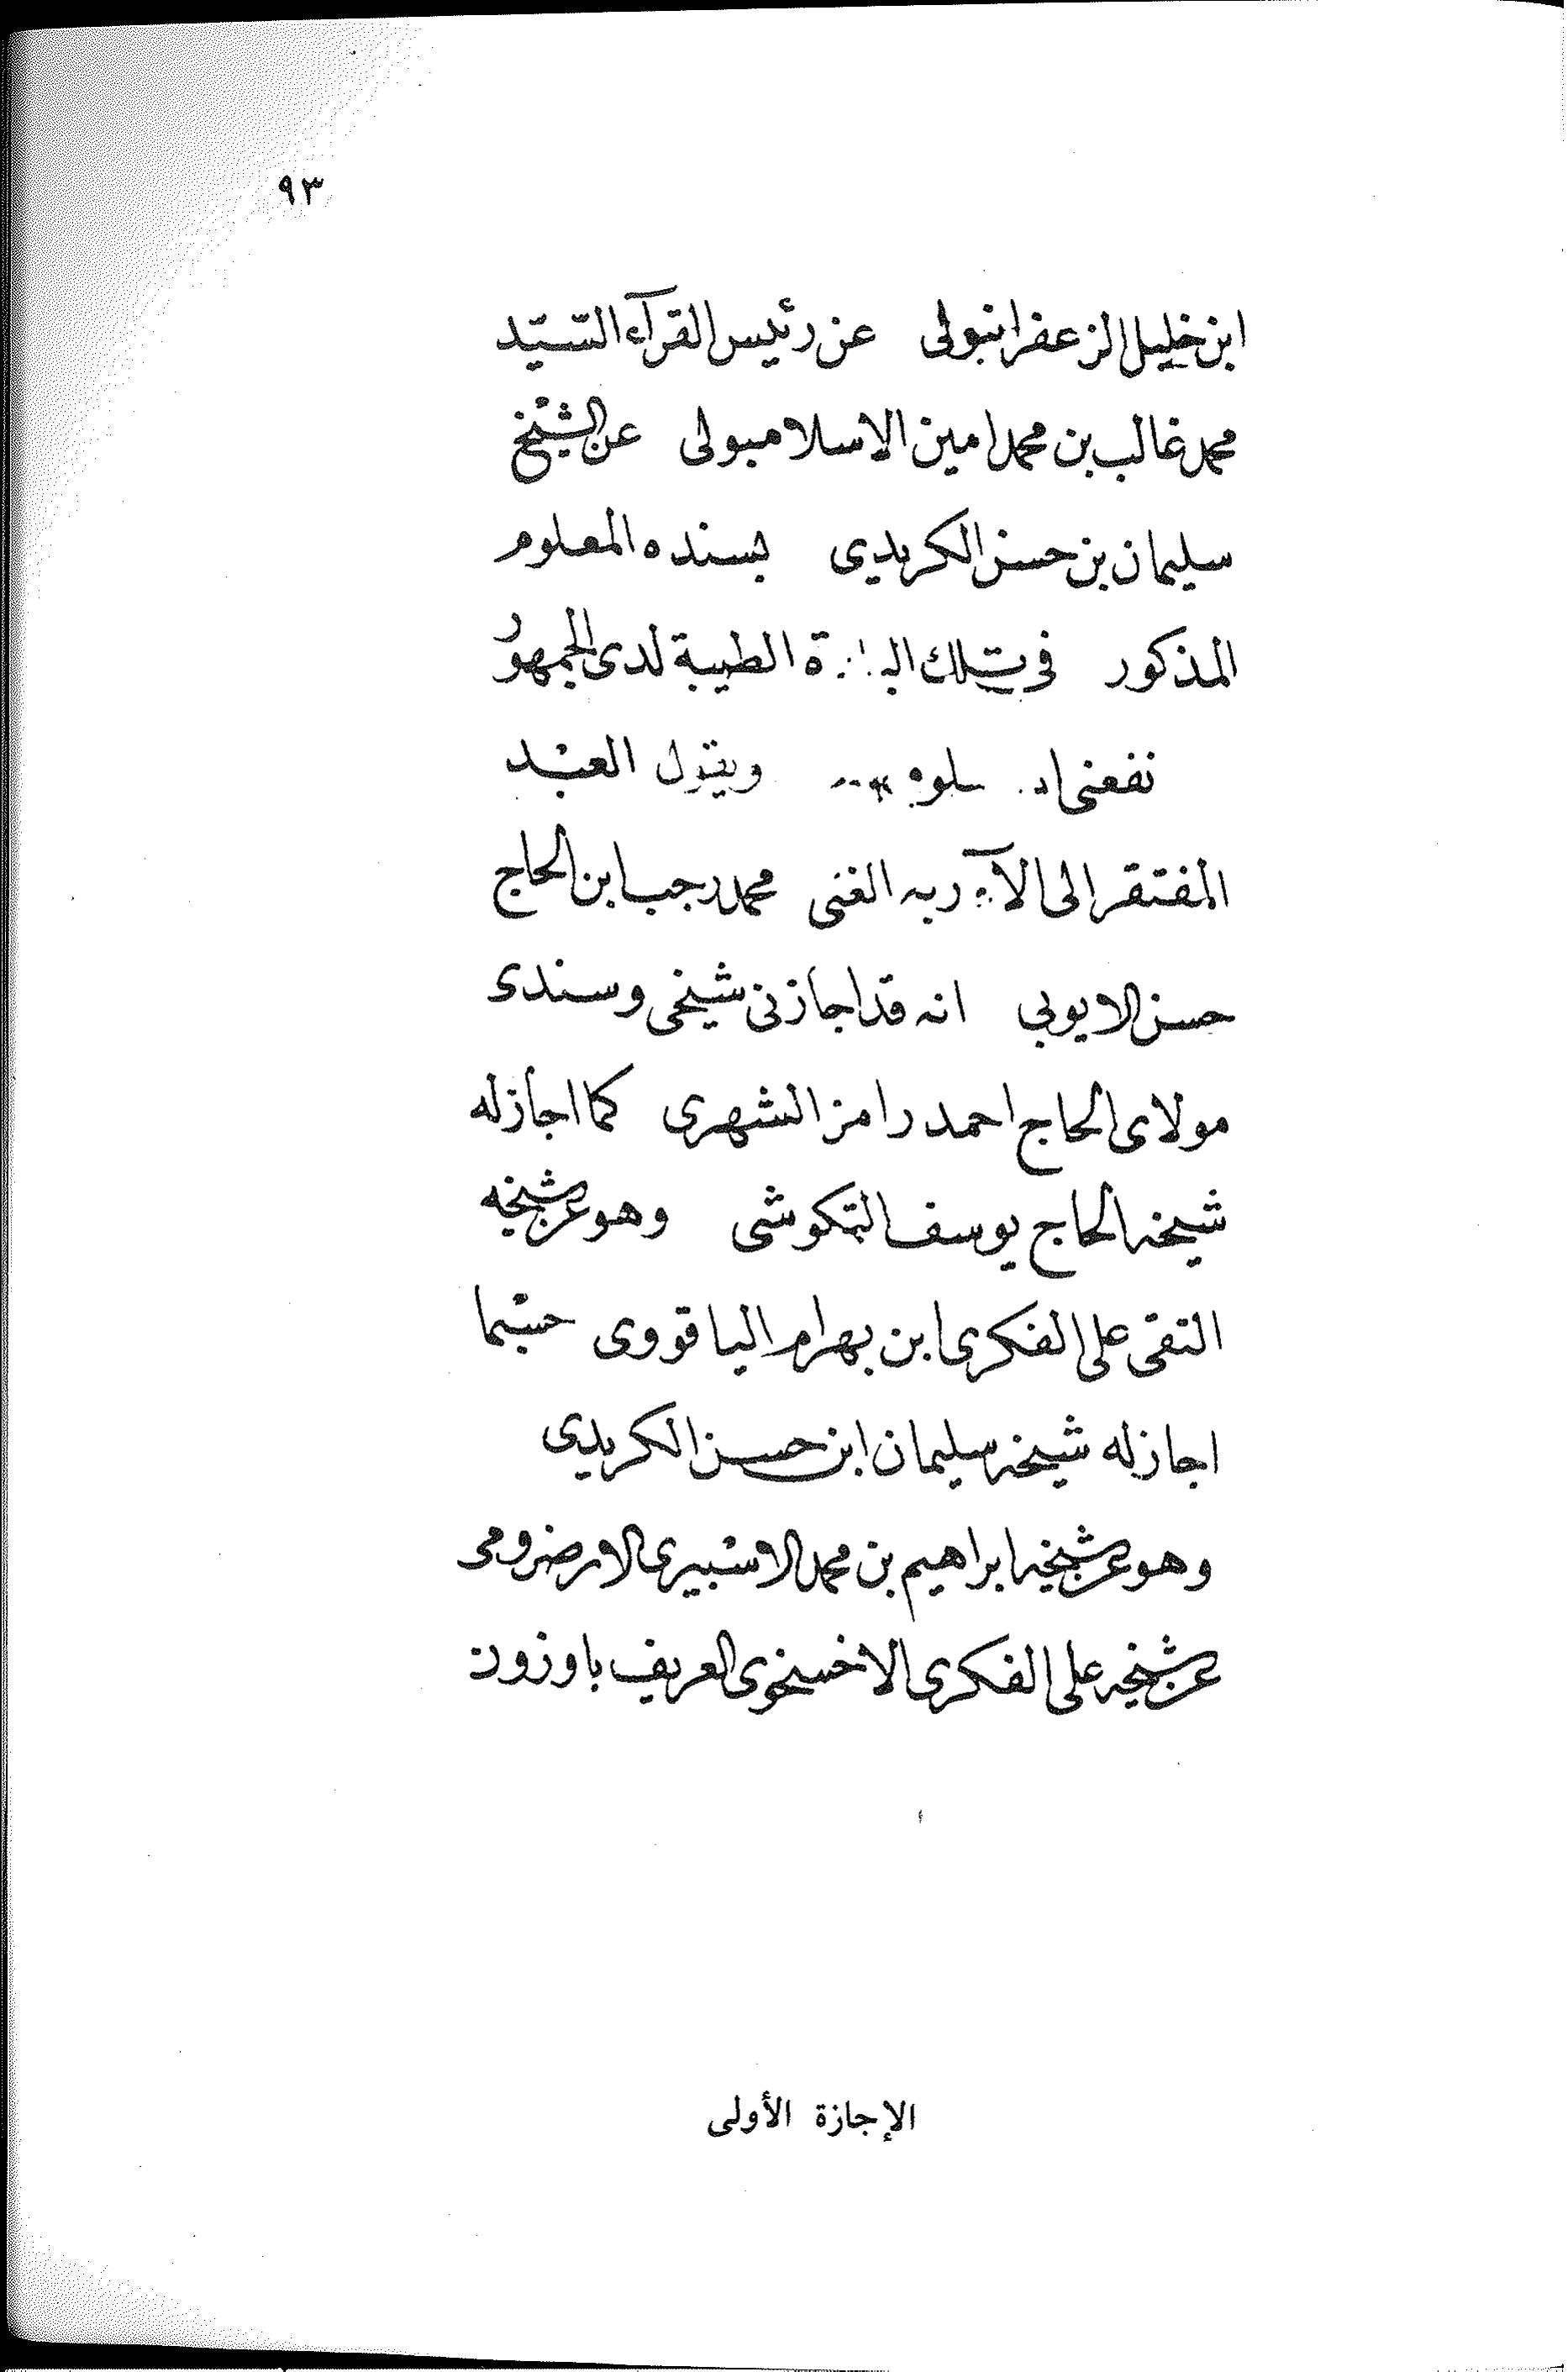 ٩٣
ابن خليل الزعفرانبولى عن رئيس القرآء السّيّد
محمد غالب بن محمد امين الاسلامبولى عن الشيخ
سليمان بن حسن الكريدى بسنده المعلوم
المذكور فى تلك الطيبة لدى الجمهور
ويقول العبد
المفتقر الى ربه الغنى محمد رجب ابن الحاج
حسن الايوبي انه قد اجازنى شيخى وسندى
مولاى الحاج احمد رامز الشهرى كما اجازله
شيخه الحاج يوسف وهو عن شيخه
التقى على الفكرى ابن بهرام الياقووى حسبما
اجازله شيخه سليمان ابن حسن الكريدى
وهو عن شيخه ابراهيم بن محمد الاسبيرى الارضرومى
عن شيخه على الفكرى الاخسخوى العريف باوزون
الإجازة الأولى